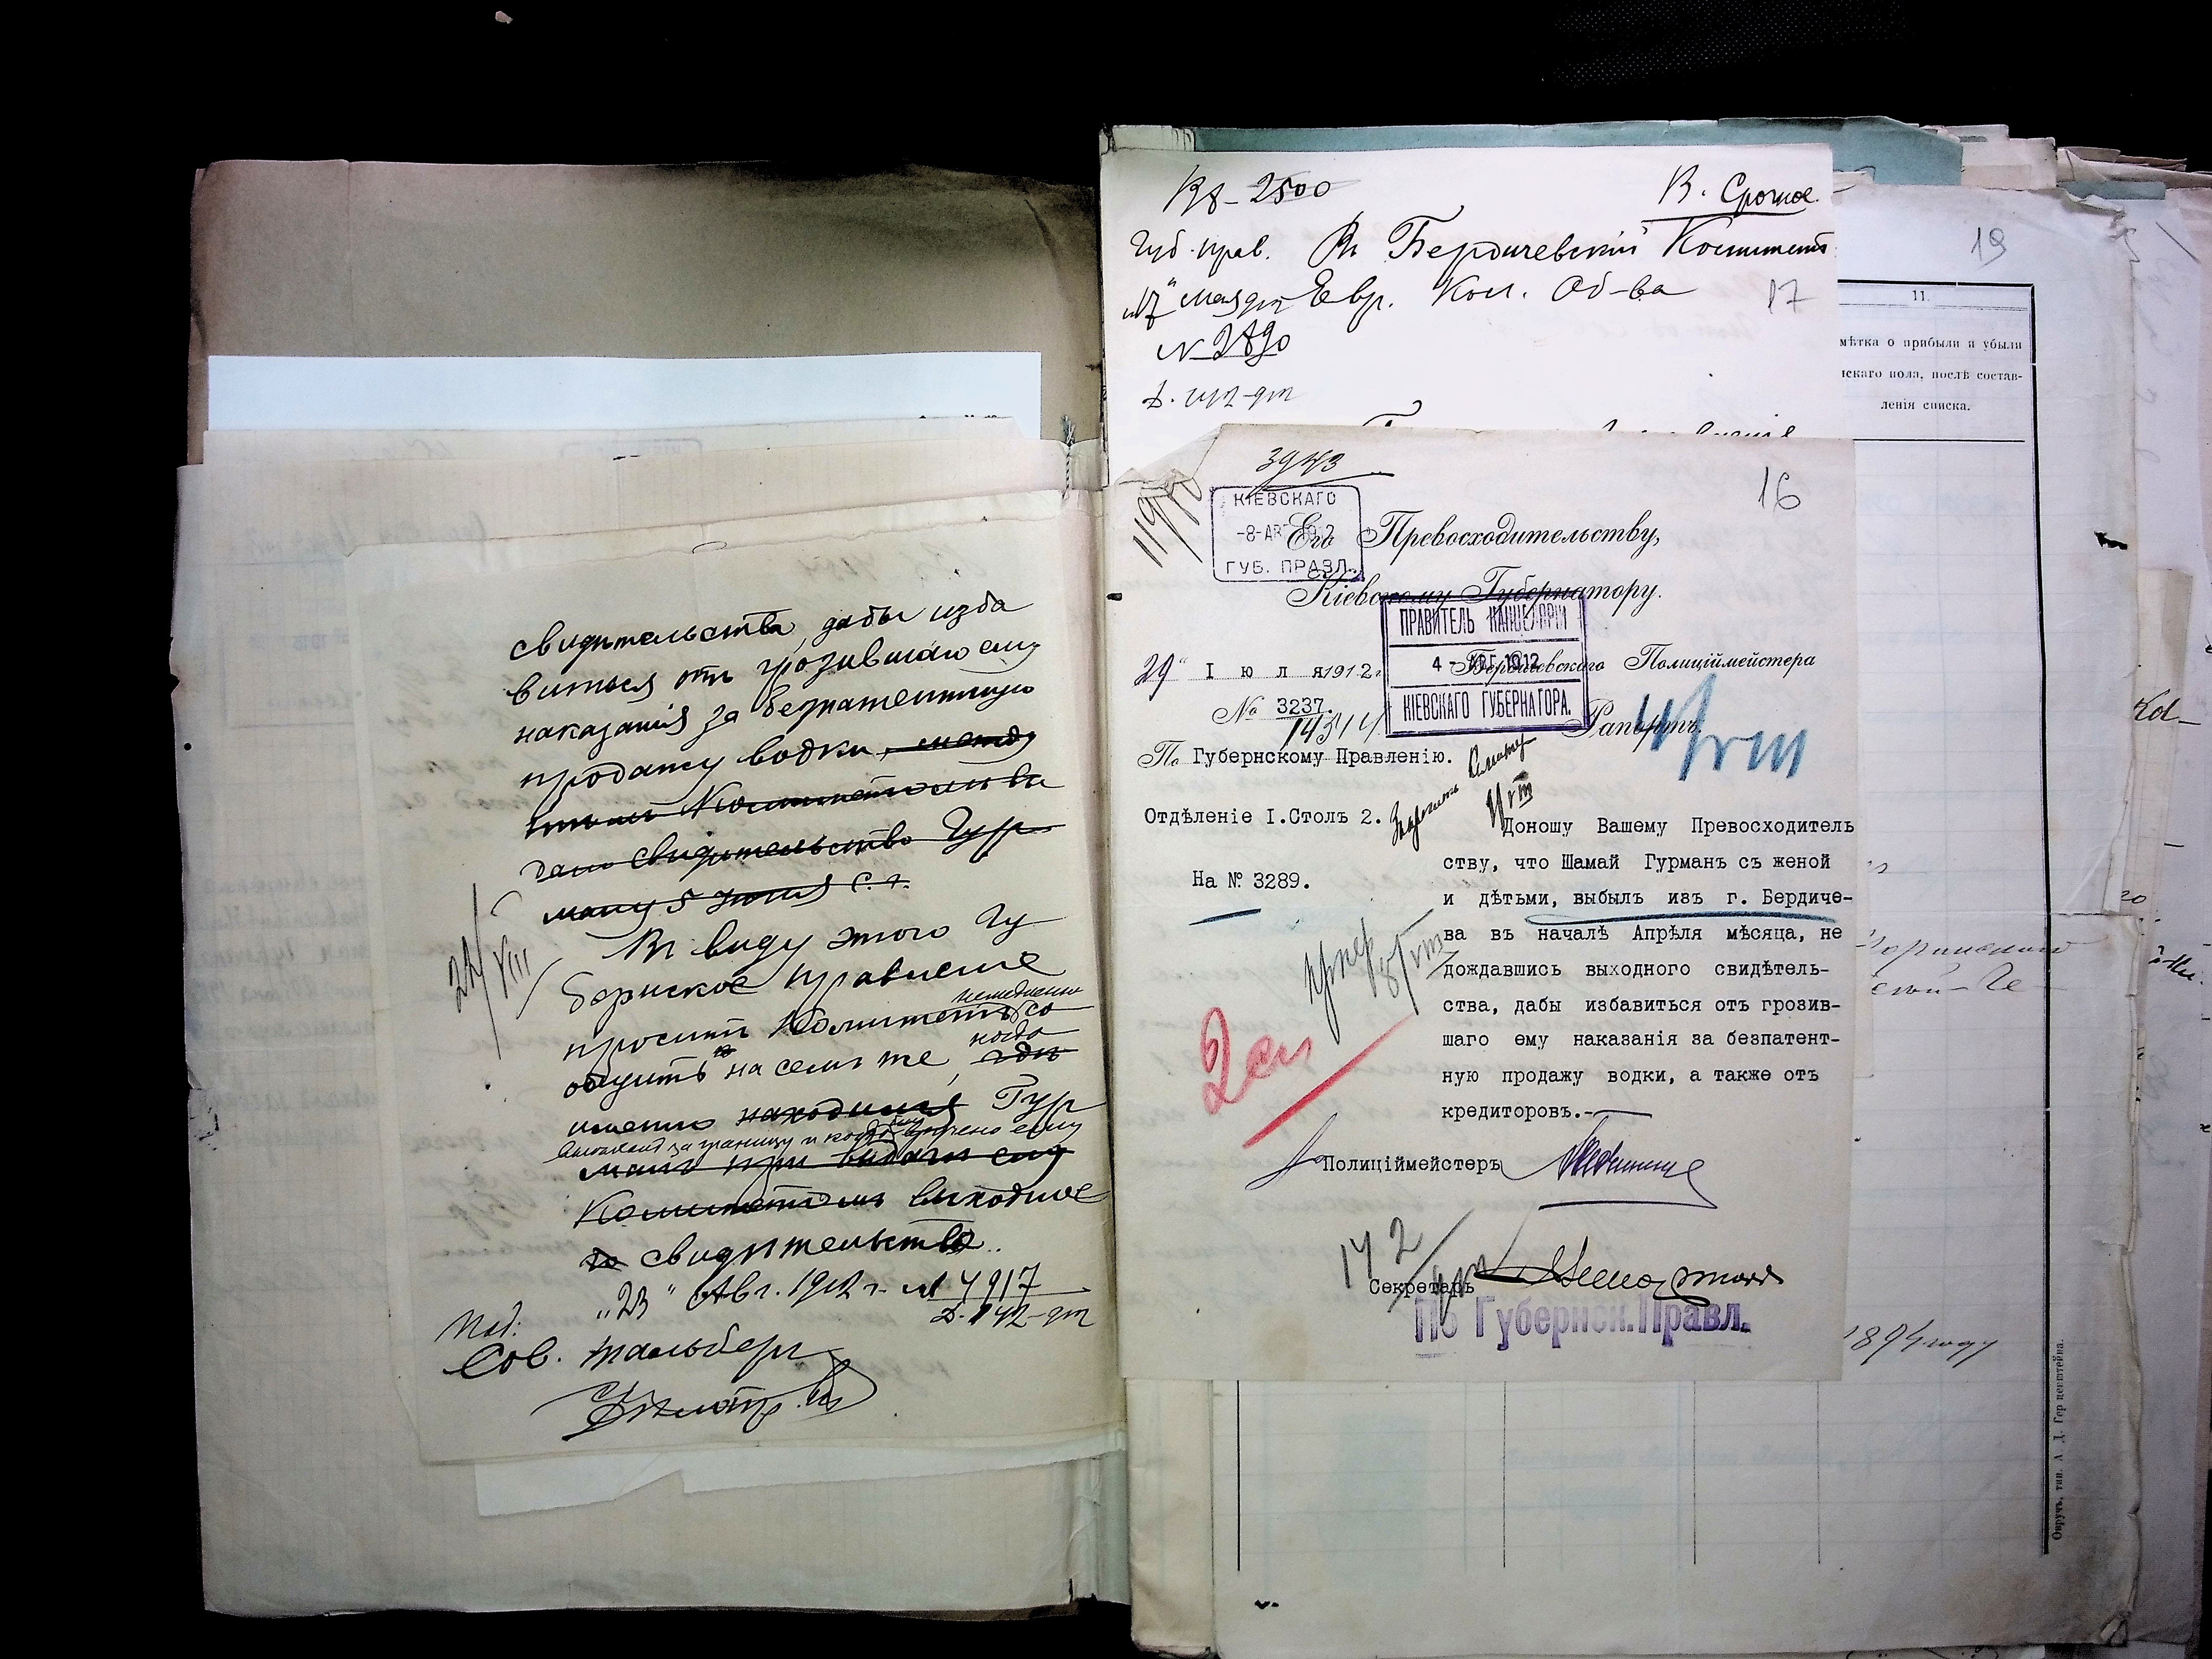 свидѣтельства, дабы изба
виться отъ грозившаго ему
наказанія за безпатентную
продажу водки, между
тѣмъ Комитетомъ вы
дано свидѣтельство Гур
ману 5 Іюня с.г.
Въ виду этого Гу
бернское Правленіе
просить Комитетъ немедленно со
общить на семъ же, когда
именно находился Гур
выѣхалъ за границу и когда было вручено ему
манъ при выдачи ему
Комитетомъ выходное
свидѣтельство.
"23" Авг. 1912 г. № 4917
Д. 142-912
24/VIII
Под:
Сов. Тальберг
В. Срочное.
2500
Губ. прав. Въ Бердичевскій Комитетъ
17 мая 912 Евр. Кол. Об-ва
17
№ 2890
Д. 142-912
19
11.
мѣтка о прибыли и убыли
нскаго пола, послѣ состав-
ленія списка.
16
КІЕВСКАГО
-8-АВГ 1912
ГУБ. ПРАВЛ.
Его Превосходительству,
Кіевскому Губернатору.
ПРАВИТЕЛЬ КАНЦЕЛЯРІИ
4 - АВГ. 1912
КІЕВСКАГО ГУБЕРНАТОРА.
Бердичевскаго Полиціймейстера
29" І ю л я 1912 г.
№ 3237.
14314
Рапортъ
По Губернскому Правленію.
Отдѣленіе I. Столъ 2.
На № 3289.
Доношу Вашему Превосходитель
ству, что Шамай Гурманъ съ женой
и дѣтьми, выбылъ изъ г. Бердиче-
ва въ началѣ Апрѣля мѣсяца, не
дождавшись выходного свидѣтель-
ства, дабы избавиться отъ грозив-
шаго ему наказанія за безпатент-
ную продажу водки, а также отъ
кредиторовъ.-
2 сп
Полиціймейстеръ
142
Секретарь
По Губернск. Правл.
1894 году
Овручъ, тип. А. Д. Герценштейна.